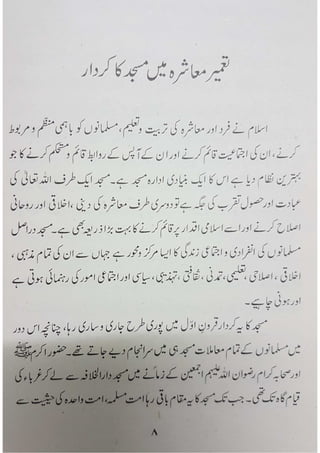 تعمیر معاشرہ میں مسجد کا کردار
اسلام نے فرد اور معاشرہ کی تربیت و تعلیم، مسلمانوں کو باہمی منظم و مربوط
کرنے، ان کی اجتماعیت قائم کرنے اور ان کے آپس کے روابط قائم و مستحکم کرنے کا جو
بہترین نظام دیا ہے اس کا ایک بنیادی ادارہ مسجد ہے۔ مسجد ایک طرف اللہ تعالیٰ کی
عبادت اور حصول تقرب کی جگہ ہے تو دوسری طرف معاشرہ کی دینی، اخلاقی اور روحانی
اصلاح کرنے اور اسے اسلامی اقدار پر قائم کرنے کا بہت بڑا ذریعہ بھی ہے۔ مسجد دراصل
مسلمانوں کی انفرادی و اجتماعی زندگی کا ایسا مرکز و محور ہے جہاں سے ان کی تمام مذہبی،
اخلاقی، اصلاحی، تعلیمی، تمدنی، ثقافتی، تہذیبی، سیاسی اور اجتماعی امور کی رہنمائی ہوتی ہے
اور ہونی چاہیے۔
مسجد کا یہ کردار قرون اوّل میں پوری طرح جاری و ساری رہا، چنانچہ اس دور
میں مسلمانوں کے تمام معاملات مسجد ہی میں سرانجام دیے جاتے تھے۔ حضور اکرم ﷺ
اور صحابہ کرام رضوان اللہ علیہم اجمعین کے زمانے میں مسجد دارالخلافہ سے لے کر غرباء کی
قیام گاہ تک تھی۔ جب تک مسجد کا یہ مقام باقی رہا امت مسلمہ، امت واحدہ کی حیثیت سے
۸